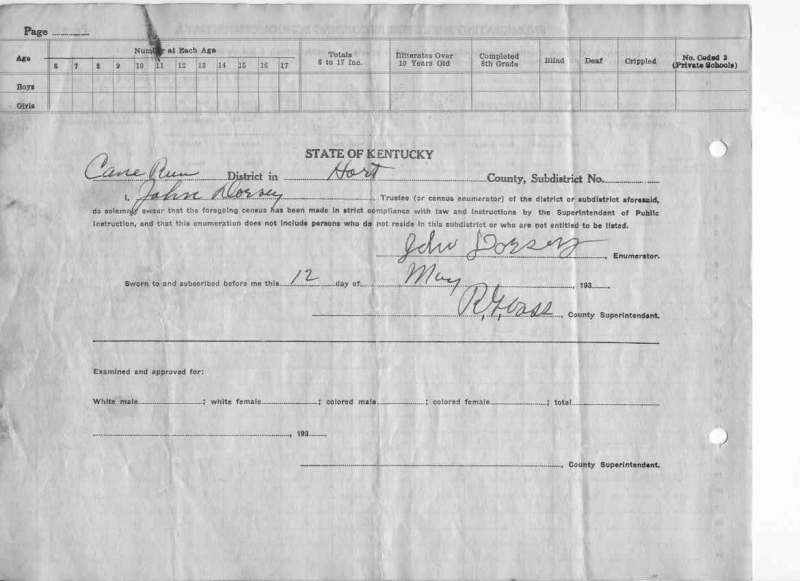 Page
Age Number at Each Age Totals 6 to 17 Inc. Illiterates Over 10 Years Old Completed 8th Grade Blind Deaf Crippled No. Coded 2 (Private Schools)
6 7 8 9 10 11 12 13 14 15 16 17
Boys
Girls
STATE OF KENTUCKY
Cane Run District in Hart County, Subdistrict No.
I, John Dorsey, Trustee (or census enumerator) of the district or subdistrict aforesaid,
do solemnly swear that the foregoing census has been made in strict compliance with law and instructions by the Superintendent of Public
Instruction, and that this enumeration does not include persons who do not reside in this subdistrict or who are not entitled to be listed.
John Dorsey, Enumerator.
Sworn to and subscribed before me this 12 day of May, 193
County Superintendent.
Examined and approved for:
White male; white female; colored male; colored female; total
, 193
, County Superintendent.